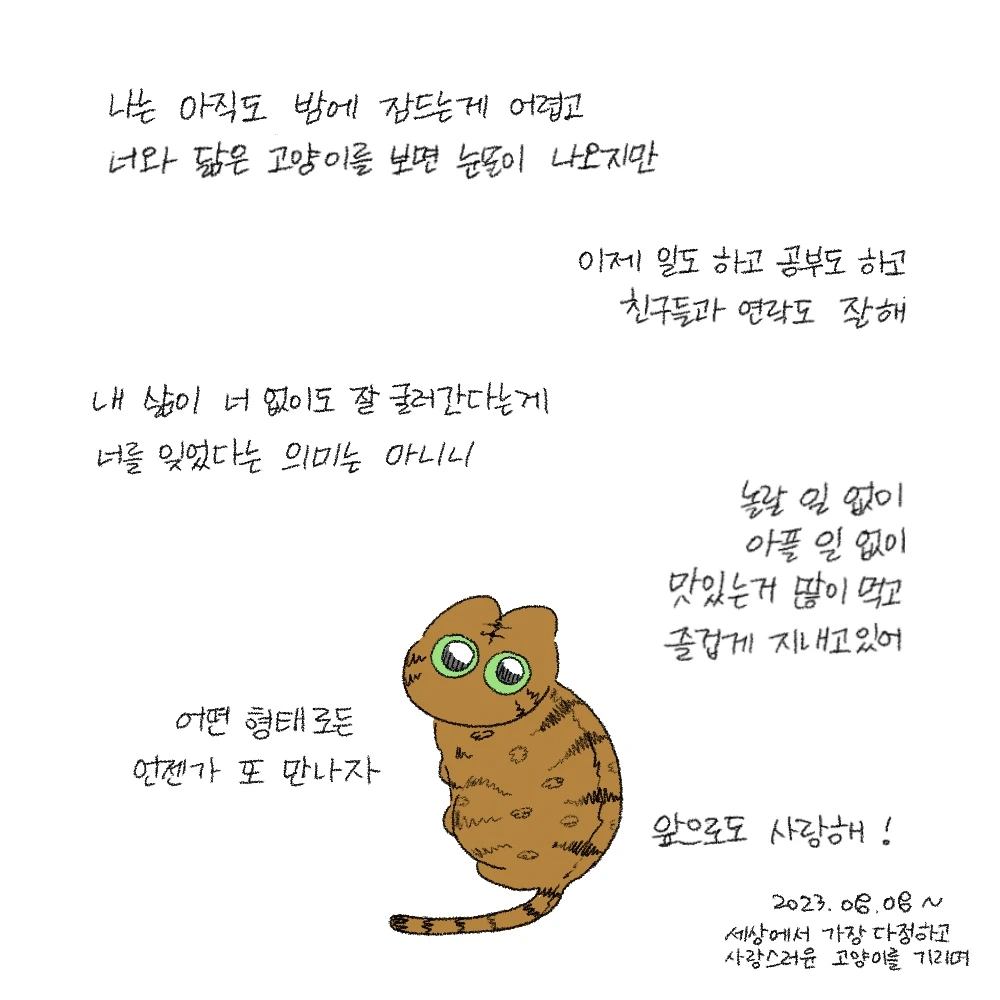 나는 아직도 밤에 잠드는게 어렵고
너와 닮은 고양이를 보면 눈물이 나오지만
이제 일도 하고 공부도 하고
친구들과 연락도 잘해
내 삶이 너 없이도 잘 굴러간다는게
너를 잊었다는 의미는 아니니
놀랄 일 없이
아플 일 없이
맛있는거 많이 먹고
즐겁게 지내고있어
어떤 형태로든
언젠가 또 만나자
앞으로도 사랑해 !
2023.08.08 ~
세상에서 가장 다정하고
사랑스러운 고양이를 기리며